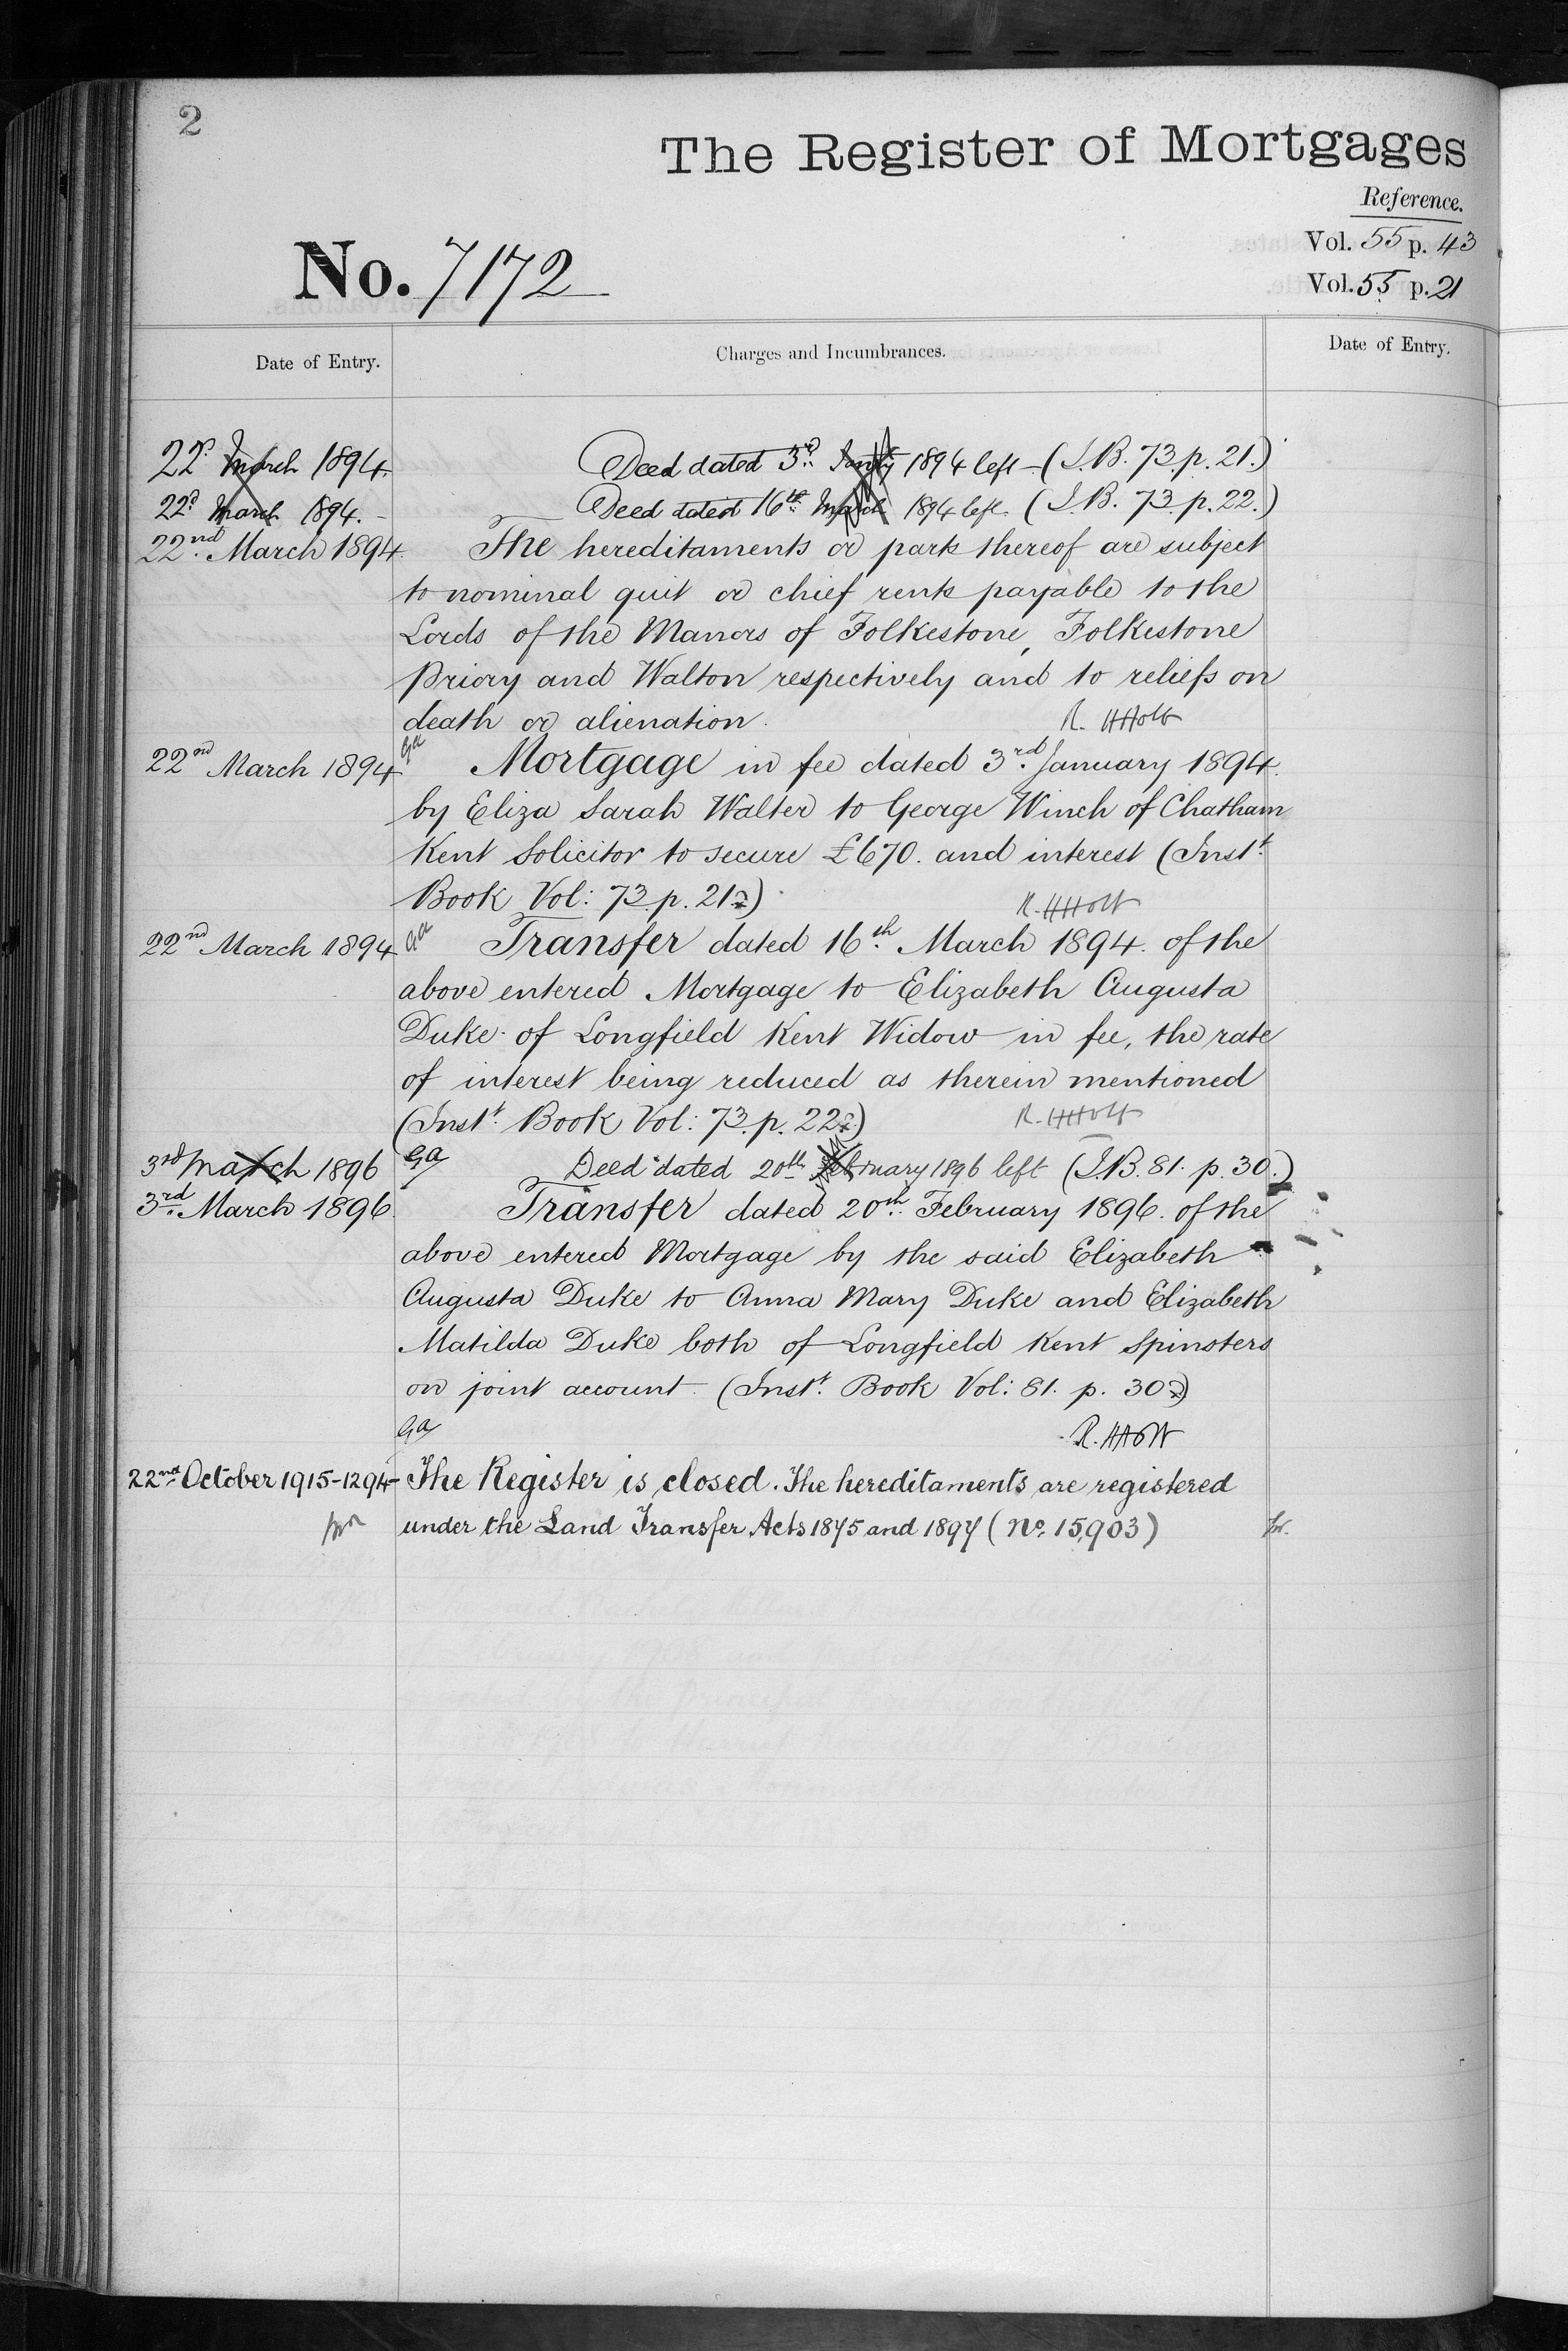 2
The Register of Mortgages
Reference.
Vol. 55 p. 43
No. 7172
Vol. 55 p. 21
Date of Entry.
Charges and Incumbrances.
Date of Entry.
22d March 1894. Deed dated 3rd Jany 1894 left (I.B. 73. p. 21.)
22d March 1894. Deed dated 16th March 1894 left. (I.B. 73. p. 22.)
22nd March 1894. The hereditaments or parts thereof are subject
to nominal quit or chief rents payable to the
Lords of the Manors of Folkestone, Folkestone
Priory and Walton respectively and to reliefs on
death or alienation. R. H Holt
Ga
22nd March 1894 Mortgage in fee dated 3rd January 1894.
by Eliza Sarah Walter to George Winch of Chatham
Kent Solicitor to secure £670. and interest (Instt
Book Vol: 73. p. 21.)
R. H Holt
22nd March 1894 Ga Transfer dated 16th March 1894. of the
above entered Mortgage to Elizabeth Augusta
Duke of Longfield Kent Widow in fee, the rate
of interest being reduced as therein mentioned
(Instt Book Vol: 73. p. 22.) R. H Holt
3rd March 1896 Ga Deed dated 20th February 1896 left (I.B. 81. p. 30.)
3rd March 1896. Transfer dated 20th February 1896. of the
above entered Mortgage by the said Elizabeth
Augusta Duke to Anna Mary Duke and Elizabeth
Matilda Duke both of Longfield Kent Spinsters
on joint account. (Instt Book Vol: 81. p. 30)
Ga R. H Holt
22nd October 1915-1294- The Register is closed. The hereditaments are registered
under the Land Transfer Acts 1875 and 1897 (No. 15,903)